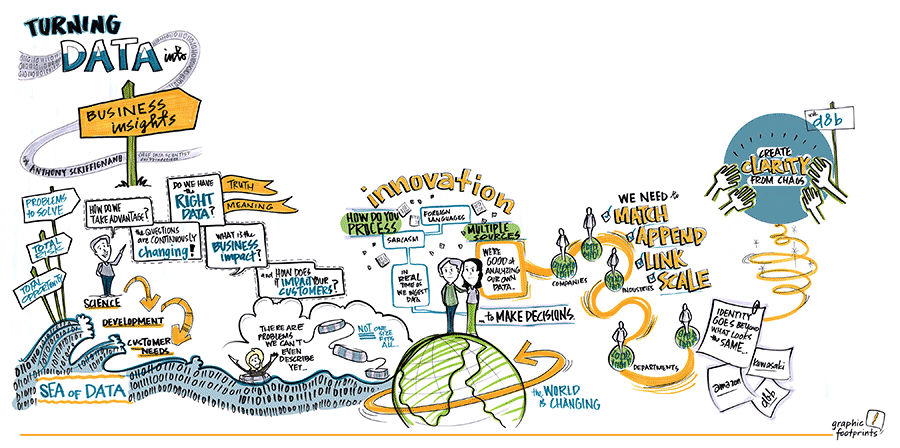 TURNING
DATA into
BUSINESS
insights
ANTHONY SCRIFFIGNANO
CHIEF DATA SCIENTIST
PROBLEMS
to SOLVE
TOTAL
RISK
TOTAL
OPPORTUNITY
HOW DO WE
TAKE ADVANTAGE?
DO WE HAVE
the RIGHT
DATA?
TRUTH
MEANING
the QUESTIONS
ARE CONTINUOUSLY
Changing!
WHAT IS the
BUSINESS
impact?
and HOW DOES
it IMPACT OUR
CUSTOMERS?
SCIENCE
DEVELOPMENT
CUSTOMER
NEEDS
SEA OF DATA
THERE ARE
PROBLEMS
WE CAN'T
EVEN
DESCRIBE
YET...
NOT ONE
SIZE
FITS
ALL...
innovation
HOW DO YOU
PROCESS
FOREIGN
LANGUAGES
SARCASM
MULTIPLE
SOURCES
IN
REAL
TIME AS
WE INGEST
DATA
WE'RE
GOOD at
ANALYZING
OUR OWN
DATA...
...to MAKE DECISIONS.
the WORLD
is CHANGING
COMPANIES
INDUSTRIES
DEPARTMENTS
WE NEED to
MATCH
APPEND
LINK
SCALE
with d&b
CREATE
CLARITY
FROM CHAOS
IDENTITY
GOES BEYOND
WHAT LOOKS
the SAME...
kawasaki
amazon
d&b
graphic
footprints